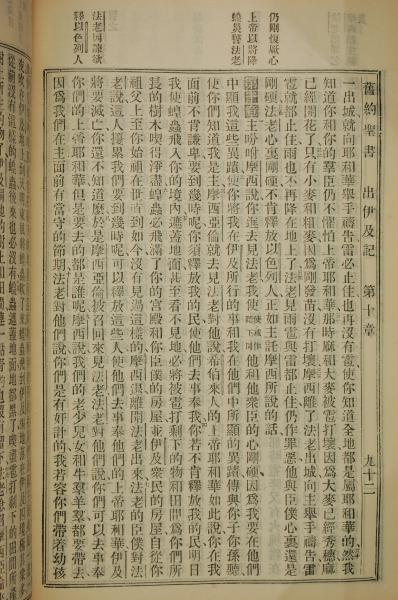 舊約聖書 出伊及記 第十章 九十二
仍剛愎厥心
上帝以將降
蝗災警法老
法老因諫欲
釋以色列人
一出城就向耶和華舉手禱告雷必止住也再沒有雹使你知道全地都是屬耶和華的然我
知道你和你的羣臣仍不懼怕上帝耶和華那時麻和大麥被雹打壞因爲大麥已經秀穗麻
已經開花了只有小麥和粗麥因爲剛發苗沒有打壞摩西離了法老出城向主舉手禱告雷
雹就都止住雨也不再降在地上了法老見雨雹與雷都止住仍作罪惡他與臣僕心裏還是
剛硬法老心裏剛硬不肯釋放以色列人正如主託摩西所說的話
主吩咐摩西說你進去見法老我使他和他衆臣的心剛硬因爲我要在他們
中顯我這些異蹟使你將我在伊及所行的事和我在他們中所顯的異蹟傳與你子你孫聽
使你們知道我是主摩西亞倫就去見法老對他說希伯來人的上帝耶和華如此說你在我
面前不肯謙卑要到幾時呢你須釋放我的民使他們去事奉我你若不肯釋放我的民明日
我使蝗蟲飛入你的境內遮蓋地面甚至看不見地必將被雹打剩下的物和田間爲你們所
長的樹木喫得淨盡蝗蟲必飛滿了你的宮殿和你臣僕的房屋並伊及衆民的房屋自從你
祖父上至你始祖在世直到如今沒有見過這樣的摩西退離開法老出來法老的臣僕對法
老說這人擾累我們要到幾時呢可以釋放這些人使他們去事奉他們的上帝耶和華伊及
將要滅亡你還不知道麼於是摩西亞倫被召回來見法老法老對他們說你們可以去事奉
你們的上帝耶和華但是要去的都是誰呢摩西說我們的老少兒女和牛羣羊羣都要帶去
因爲我們在主面前有當守的節期法老對他們說你們是有奸計的我若容你們帶着幼孩